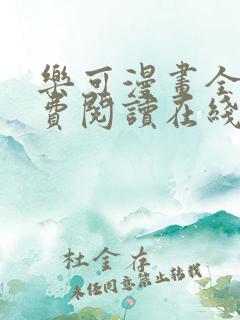 樂可漫畫全
費閱讀在綫
杜金存
未经同意禁止转载